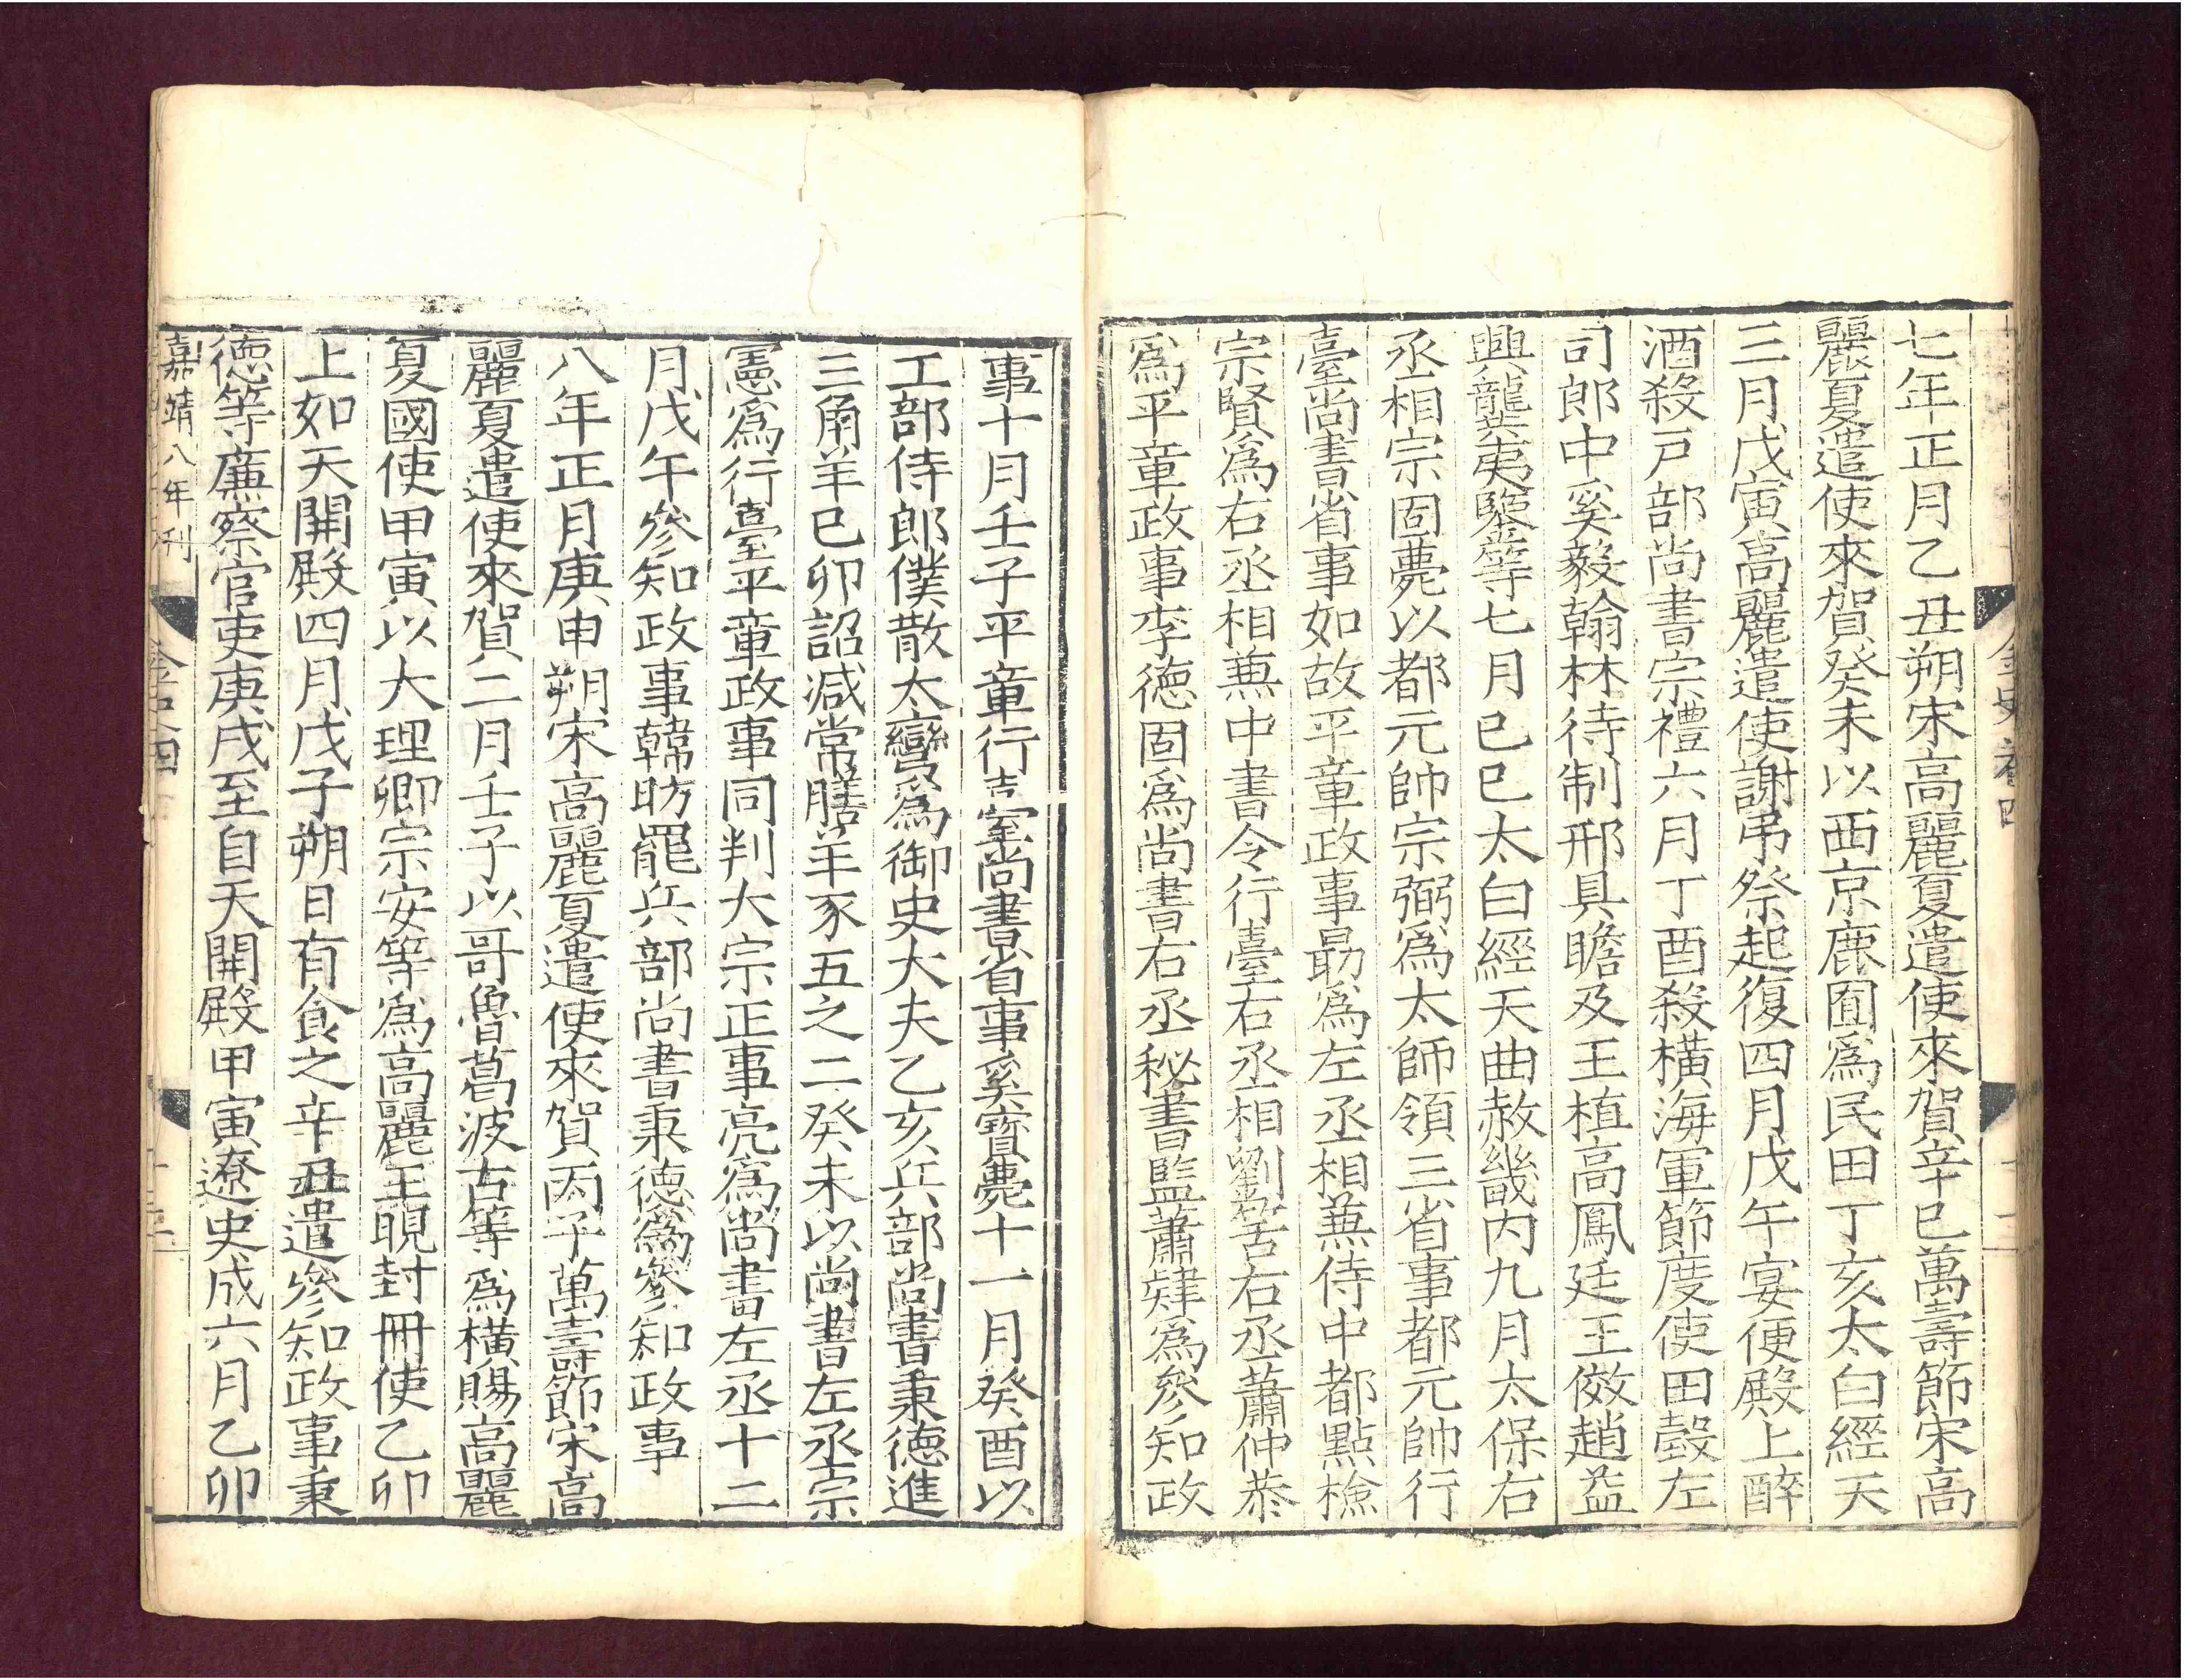 七年正月乙丑朔宋高麗夏遣使來賀辛巳萬壽節宋高
麗夏遣使來賀癸未以西京鹿囿爲民田丁亥太白經天
三月戊寅高麗遣使謝弔祭起復四月戊午宴便殿上醉
酒殺戸部尚書宗禮六月丁酉殺橫海軍節度使田瑴左
司郎中奚毅翰林待制邢具瞻及王植高鳳廷王傚趙益
興龔夷鑒等七月己巳太白經天曲赦畿内九月太保右
丞相宗固薨以都元帥宗弼爲太師領三省事都元帥行
臺尚書省事如故平章政事勗爲左丞相兼侍中都點檢
宗賢爲右丞相兼中書令行臺右丞相劉筈右丞蕭仲恭
爲平章政事李德固爲尚書右丞秘書監蕭肄爲參知政
事十月壬子平章行臺尚書省事奚寶薨十一月癸酉以
工部侍郎僕散太彎爲御史大夫乙亥兵部尚書秉德進
三角羊己卯詔減常膳羊豕五之二癸未以尚書左丞宗
憲爲行臺平章政事同判大宗正事亮爲尚書左丞十二
月戊午參知政事韓昉罷兵部尚書秉德爲參知政事
八年正月庚申朔宋高麗夏遣使來賀丙子萬壽節宋高
麗夏遣使來賀二月壬子以哥魯葛波古等爲橫賜高麗
夏國使甲寅以大理卿宗安等爲高麗王晛封冊使乙卯
上如天開殿四月戊子朔日有食之辛丑遣參知政事秉
德等廉察官吏庚戌至自天開殿甲寅遼史成六月乙卯
嘉靖八年刊